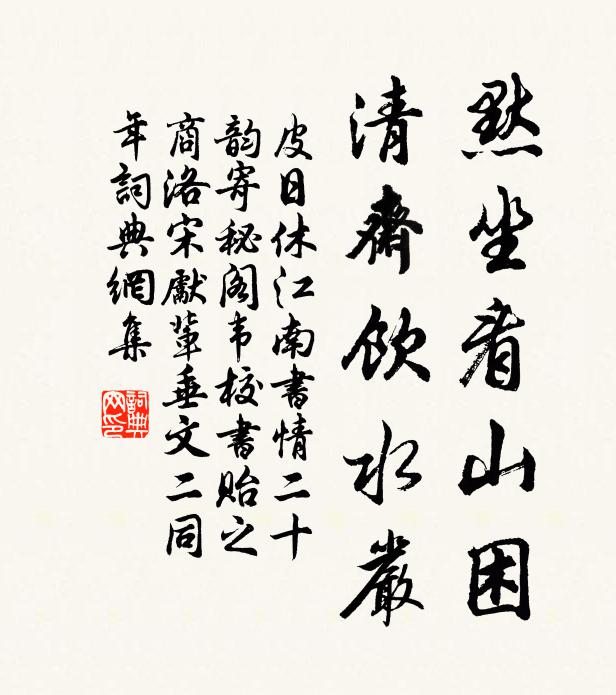 默坐看山困
清齋飲水嚴
皮日休江南書情二十
韵寄秘阁韦校書貽之
商洛宋獻輩垂文二同
年詞典網集
詞典網印